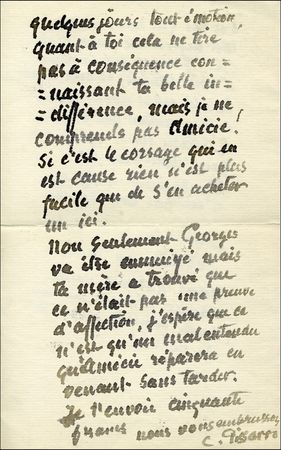 quelques jours tout émotion,
quant à toi cela ne tire
pas à conséquence con=
=naissant ta belle in=
=différence, mais je ne
comprends pas Amicie!
Si c'est le corsage qui en
est cause rien n'est plus
facile que de s'en acheter
un ici.
Non seulement Georges
va être ennuyé mais
ta mère a trouvé que
ce n'était pas une preuve
d'affection, j'espère que ce
n'est qu'un malentendu
qu'Amicie réparera en
venant sans tarder.
Je t'envoie cinquante
francs nous vous embrassons
C. Pissarro